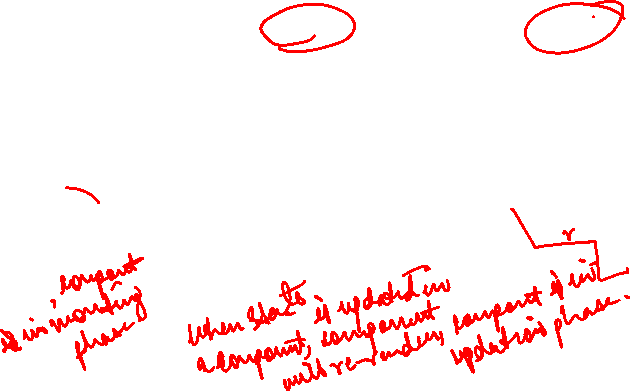 , compont
is in mounting
phase
When State is updated in
a compount, component
will re-render, compont is in
updation phase.
r